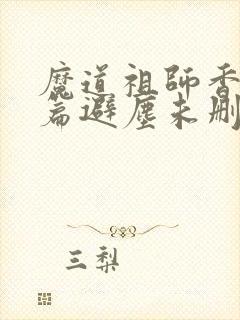 魔道祖師香
篇避塵未刪
三梨